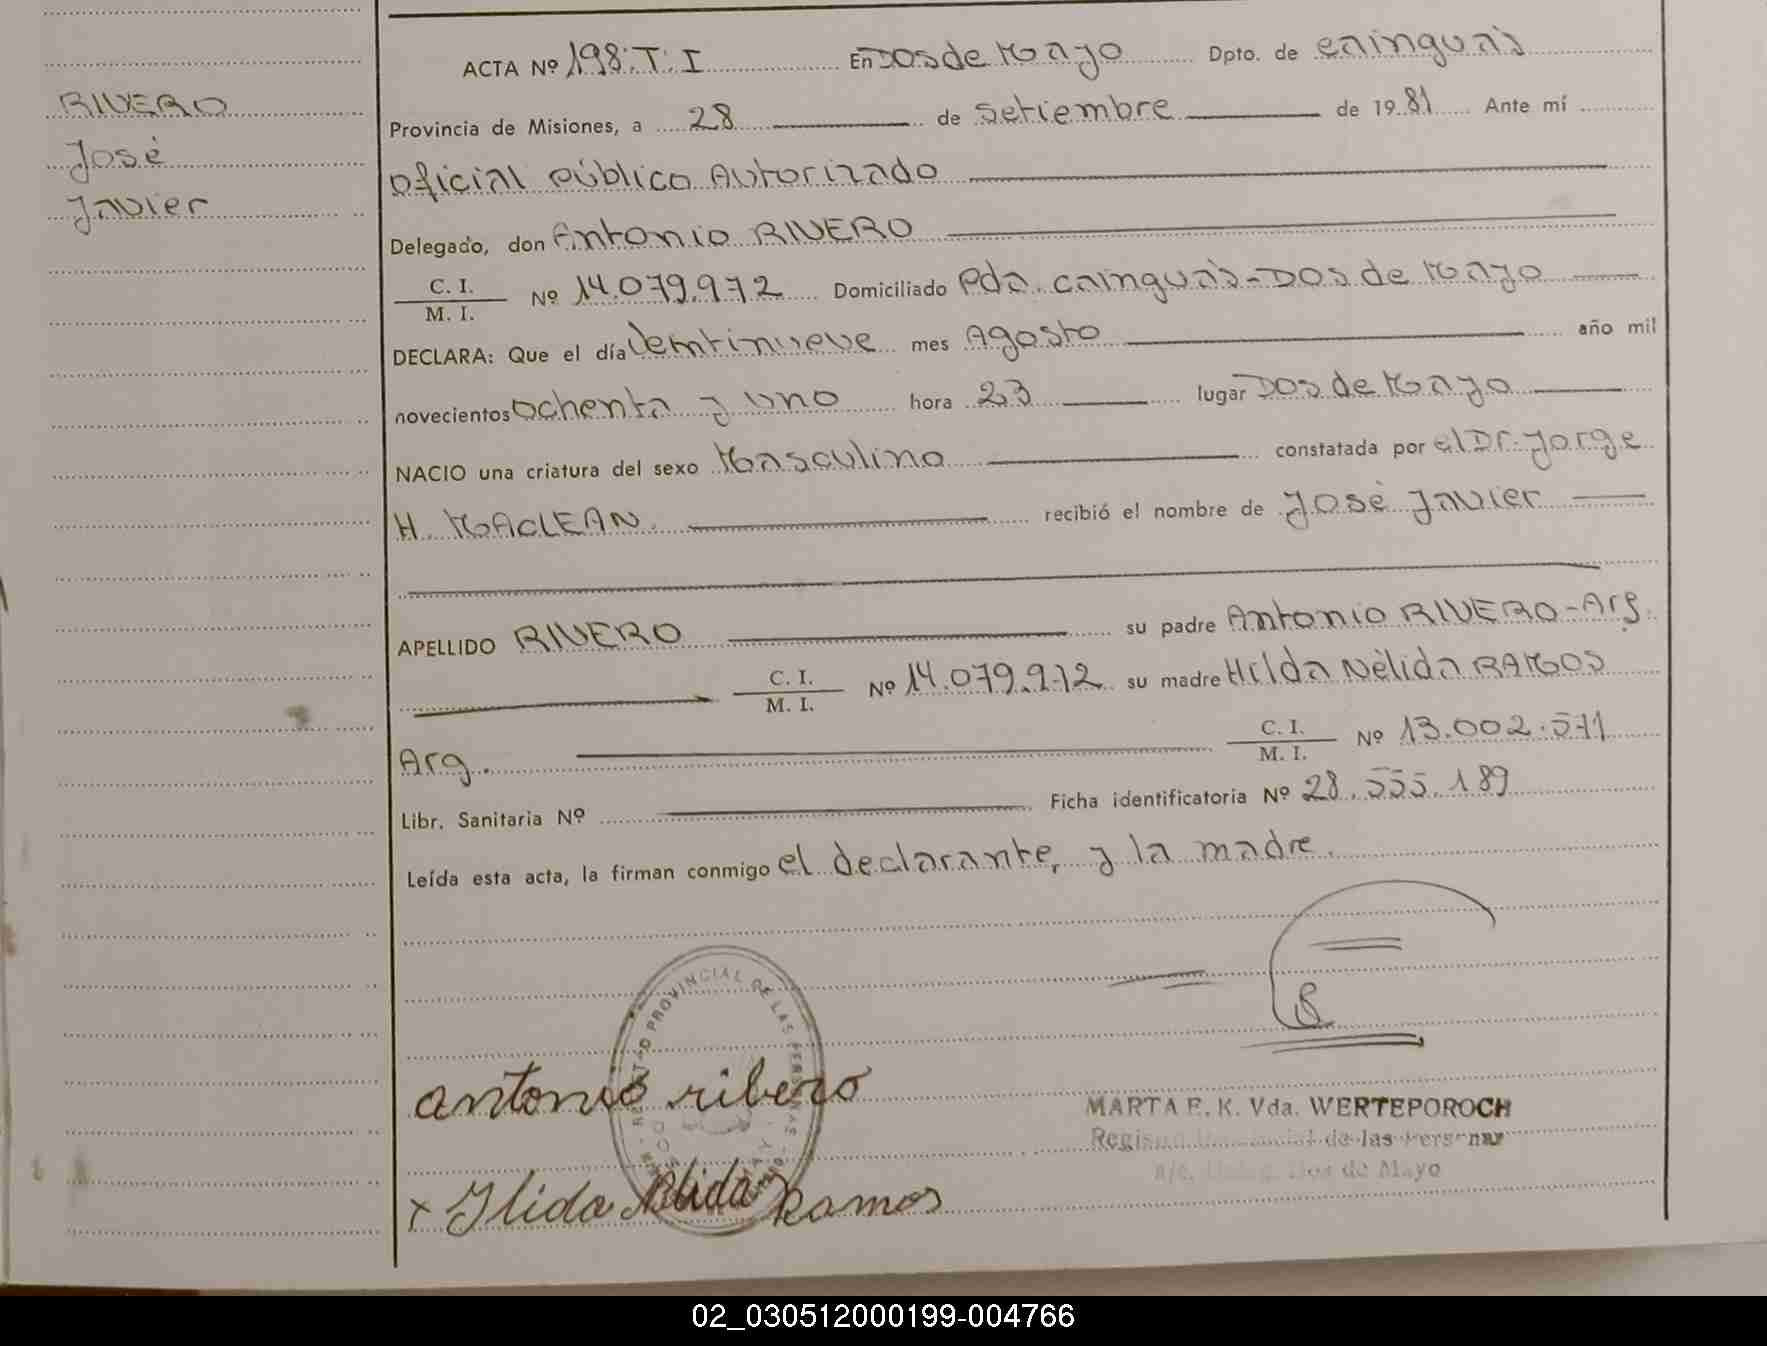 RIVERO
José
Javier
ACTA Nº 198.T.I En Dos de Mayo Dpto. de Cainguás
Provincia de Misiones, a 28 de Setiembre de 1981 Ante mí
Oficial Público Autorizado
Delegado, don Antonio RIVERO
C. I.
M. I. Nº 14.079.972 Domiciliado Pda. Cainguás-Dos de Mayo
DECLARA: Que el día Veintinueve mes Agosto año mil
novecientos ochenta y uno hora 23 lugar Dos de Mayo
NACIO una criatura del sexo Masculino constatada por el Dr. Jorge
H. MACLEAN. recibió el nombre de José Javier
APELLIDO RIVERO su padre Antonio RIVERO-Arg.
C. I.
M. I. Nº 14.079.972 su madre Hilda Nélida RAMOS
Arg. C. I.
M. I. Nº 13.002.571
Libr. Sanitaria Nº Ficha identificatoria Nº 28.555.189
Leída esta acta, la firman conmigo el declarante, y la madre.
PROVINCIAL DE LAS PERSONAS
antonio ribero
x Ilida Nelida Ramos
MARTA E. K. Vda. WERTEPOROCH
Registro Provincial de las Personas
a/c. Deleg. Dos de Mayo
02_030512000199-004766